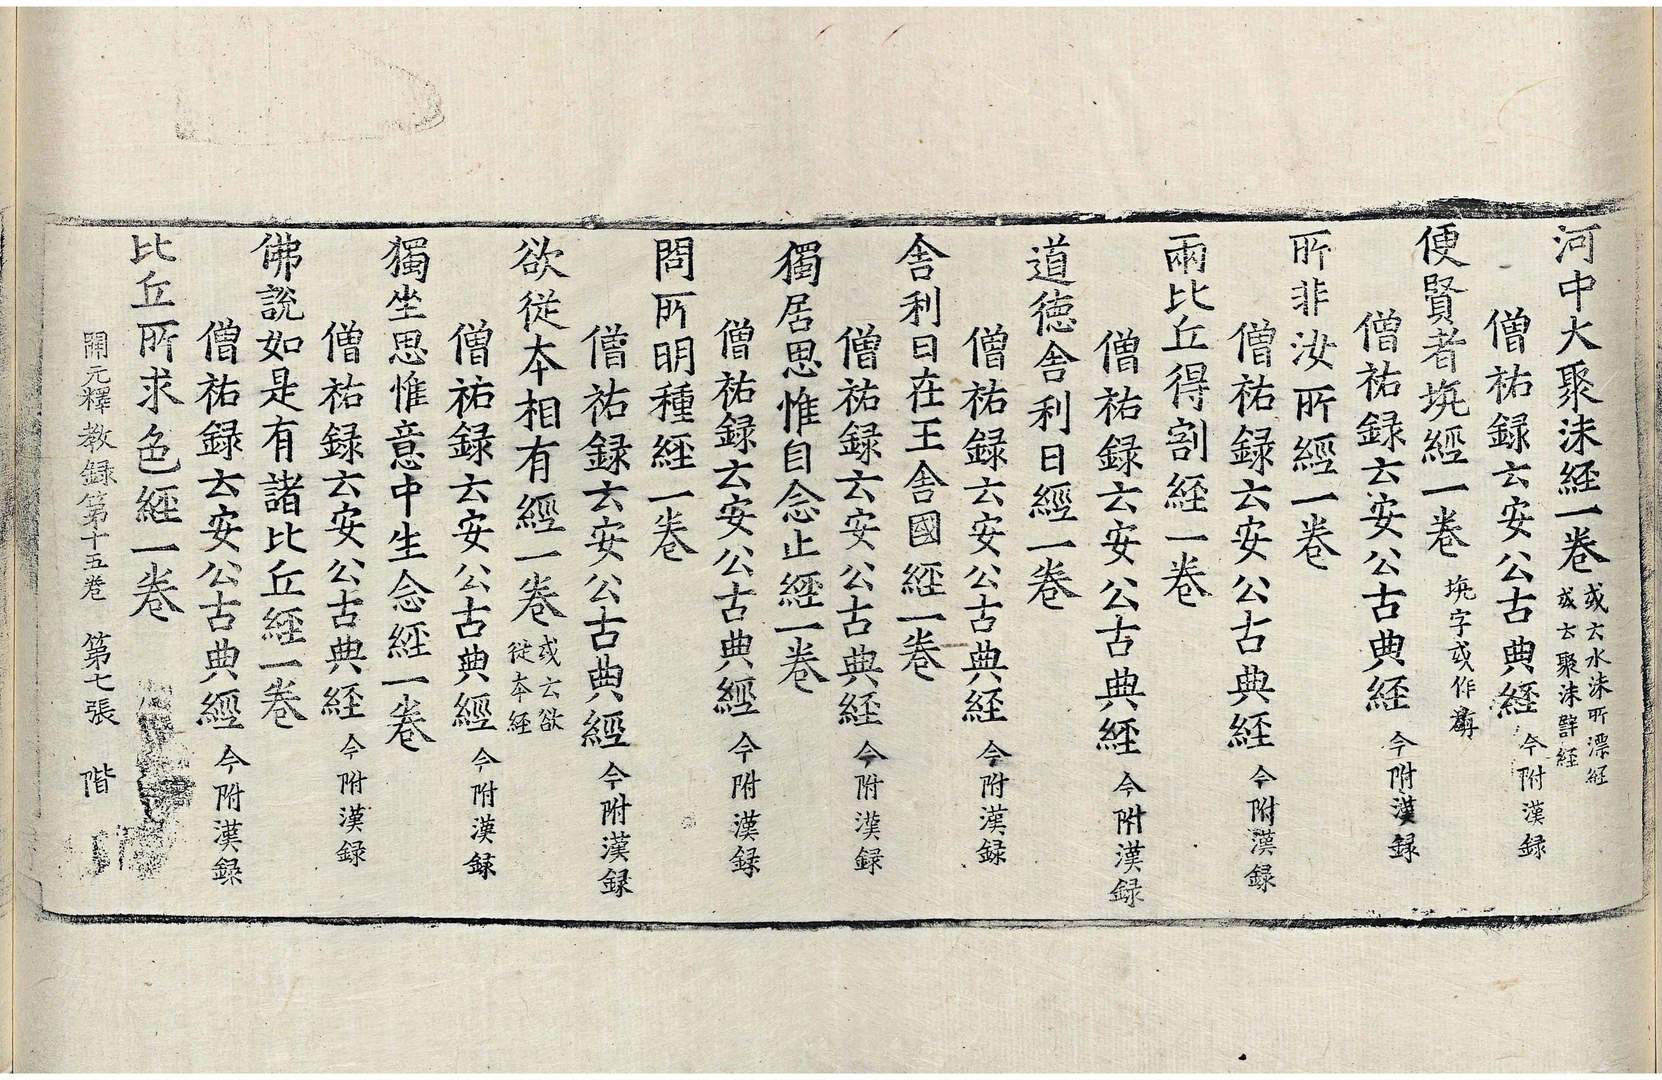 河中大聚沫經一卷 或云水沫所漂經 或云聚沫譬經
僧祐録云安公古典經 今附漢録
便賢者坑經一卷 坑字或作
僧祐録云安公古典經 今附漢録
所非汝所經一卷
僧祐録云安公古典經 今附漢録
兩比丘得割經一卷
僧祐録云安公古典經 今附漢録
道德舍利日經一卷
僧祐録云安公古典經 今附漢録
舍利日在王舍國經一卷
僧祐録云安公古典經 今附漢録
獨居思惟自念止經一卷
僧祐録云安公古典經 今附漢録
問所明種經一卷
僧祐録云安公古典經 今附漢録
欲從本相有經一卷 或云欲從本經
僧祐録云安公古典經 今附漢録
獨坐思惟意中生念經一卷
僧祐録云安公古典經 今附漢録
佛說如是有諸比丘經一卷
僧祐録云安公古典經 今附漢録
比丘所求色經一卷
開元釋教録第十五卷 第七張 階